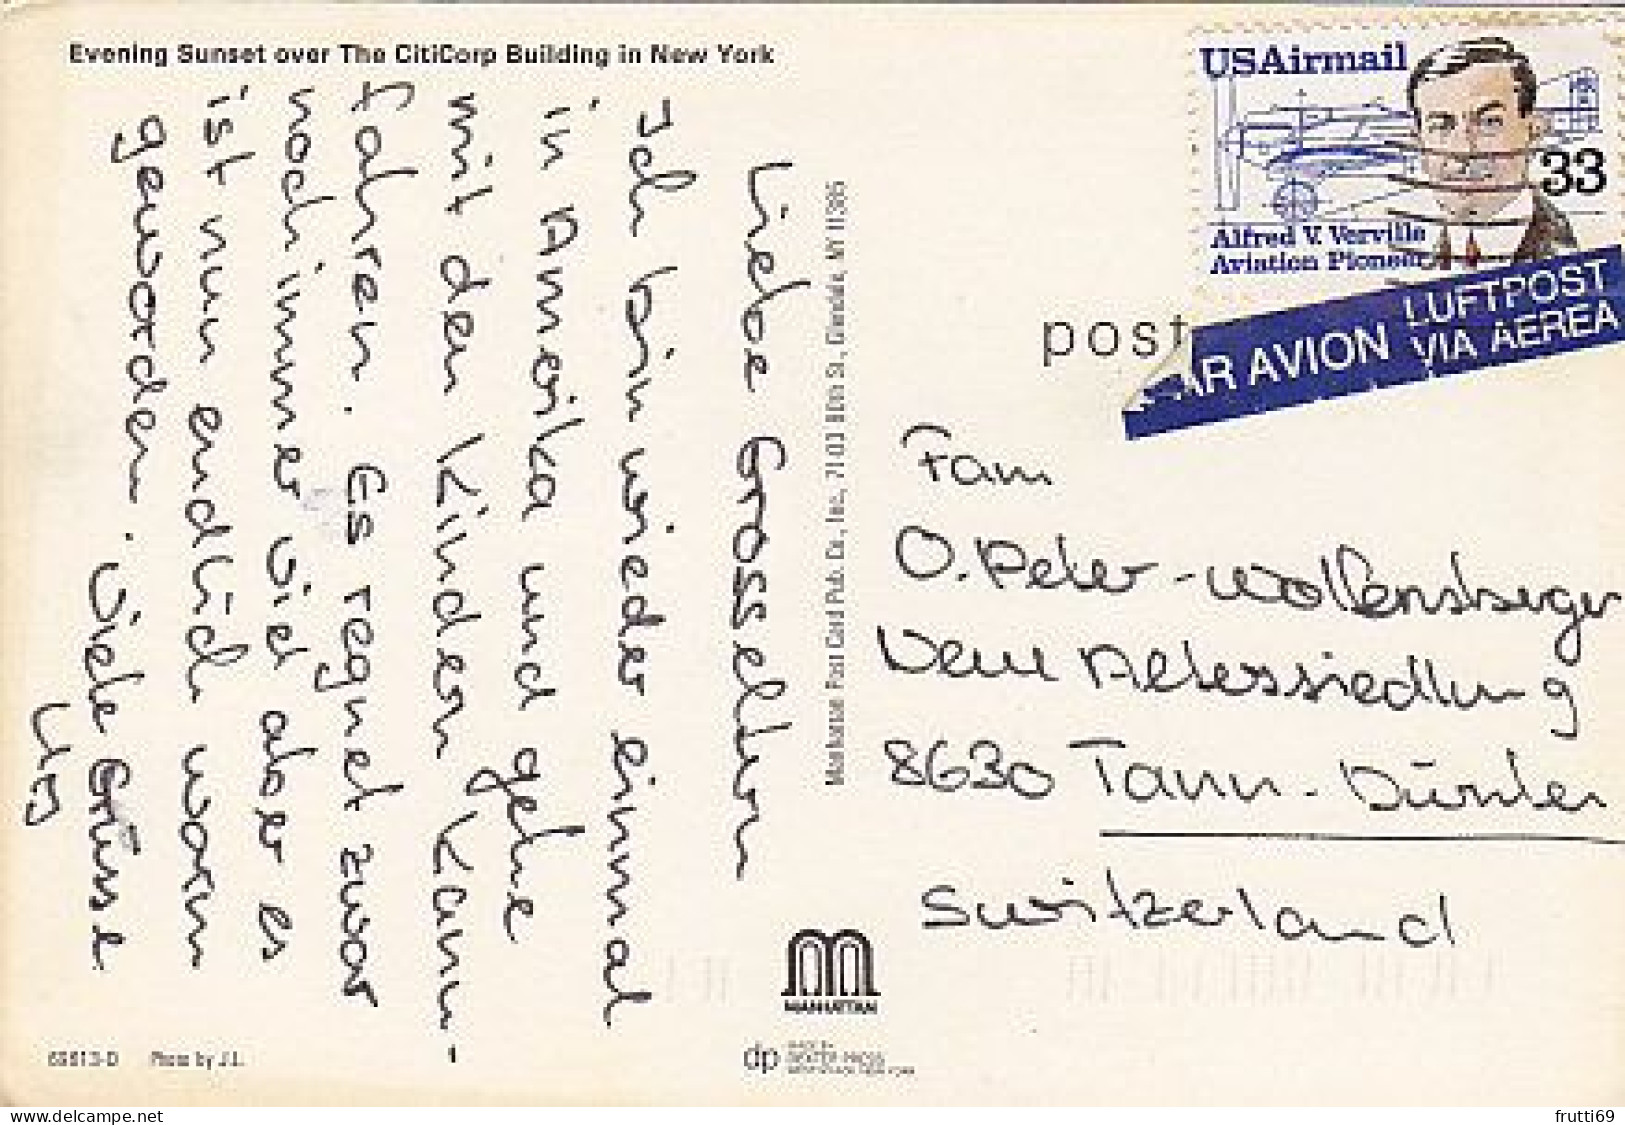 Evening Sunset over The CitiCorp Building in New York
Liebe Grosseltern
Ich bin wieder einmal
in Amerika und gehe
mit den Kindern Kanu-
fahren. Es regnet zwar
noch immer viel aber es
ist nun endlich warm
geworden. Viele Grüsse
Urs
Manhattan Post Card Pub. Co., Inc., 7103 80th St., Glendale, NY 11385
USAirmail
33
Alfred V. Verville
Aviation Pioneer
post
PAR AVION
LUFTPOST
VIA AEREA
Fam
O. Peter-Wolfensberger
Neue Alterssiedlung
8630 Tann-Dürnten
Switzerland
MANHATTAN
dp
MADE BY
DEXTER PRESS
WEST NYACK, NEW YORK
Photo by J.L.
frutti69